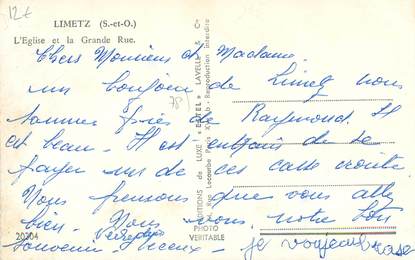 12€
LIMETZ (S.-et-O.)
L'Eglise et la Grande Rue.
Chers Monsieur et Madame.
un bonjour de Limetz nous
sommes près de Raymond. Il
est beau. Il est entrain de se
payer un de ces casse croute
Nous pensons que vous allez
bien. Nous vous, notre
Souvenir
je
(78)
EDITIONS DE LUXE "ESTEL" LAVELLE & Cie
Paris X° Reproduction interdite
PHOTO
VERITABLE
20304